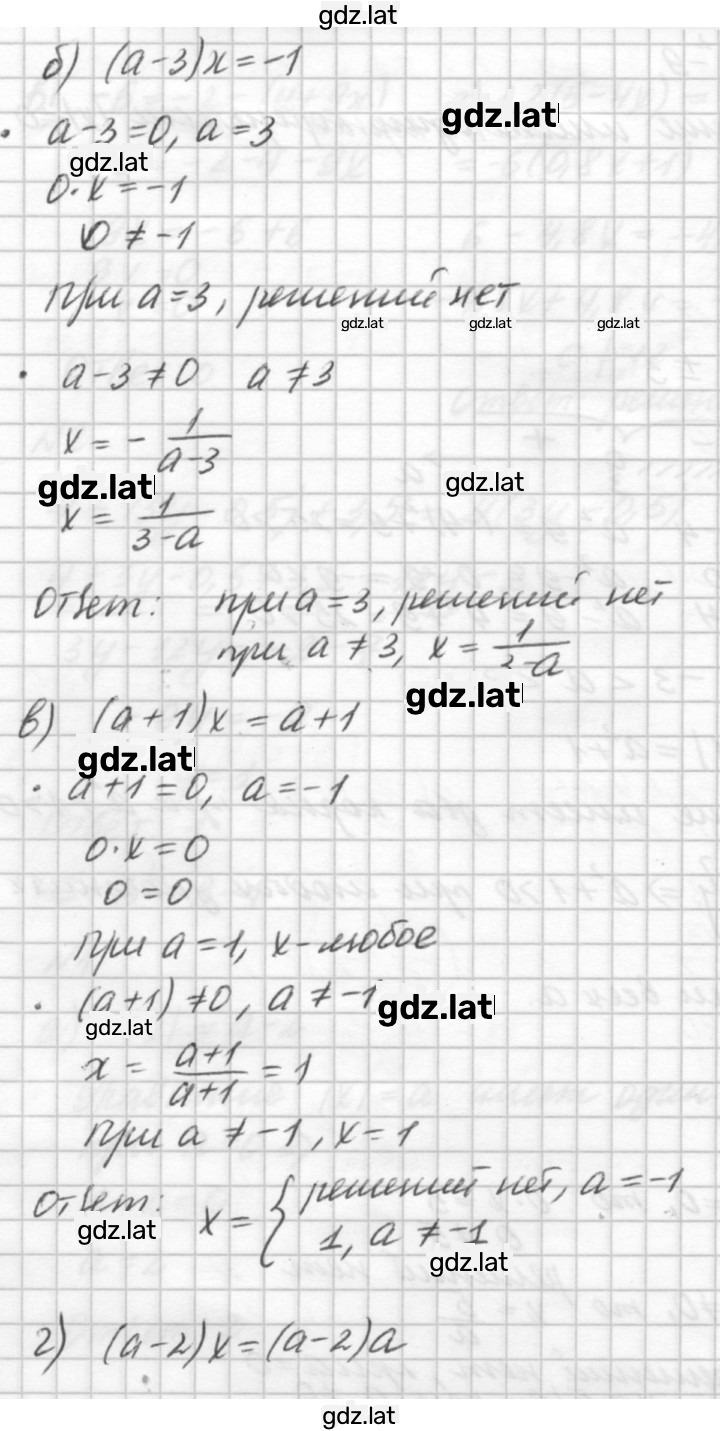 gdz.lat
б) (a-3)x=-1
gdz.lat
• a-3=0, a=3
gdz.lat
0·x=-1
0≠-1
при a=3, решений нет
gdz.lat gdz.lat gdz.lat
• a-3≠0 a≠3
x = - 1/(a-3)
gdz.lat gdz.lat
x = 1/(3-a)
Ответ: при a=3, решений нет
при a≠3, x = 1/(3-a)
gdz.lat
в) (a+1)x = a+1
gdz.lat
• a+1=0, a=-1
0·x=0
0=0
при a=1, x-любое
• (a+1)≠0, a≠-1
gdz.lat
gdz.lat
x = (a+1)/(a+1) = 1
при a≠-1, x=1
Ответ: x = { решений нет, a=-1
1, a≠-1
gdz.lat
gdz.lat
г) (a-2)x=(a-2)a
gdz.lat